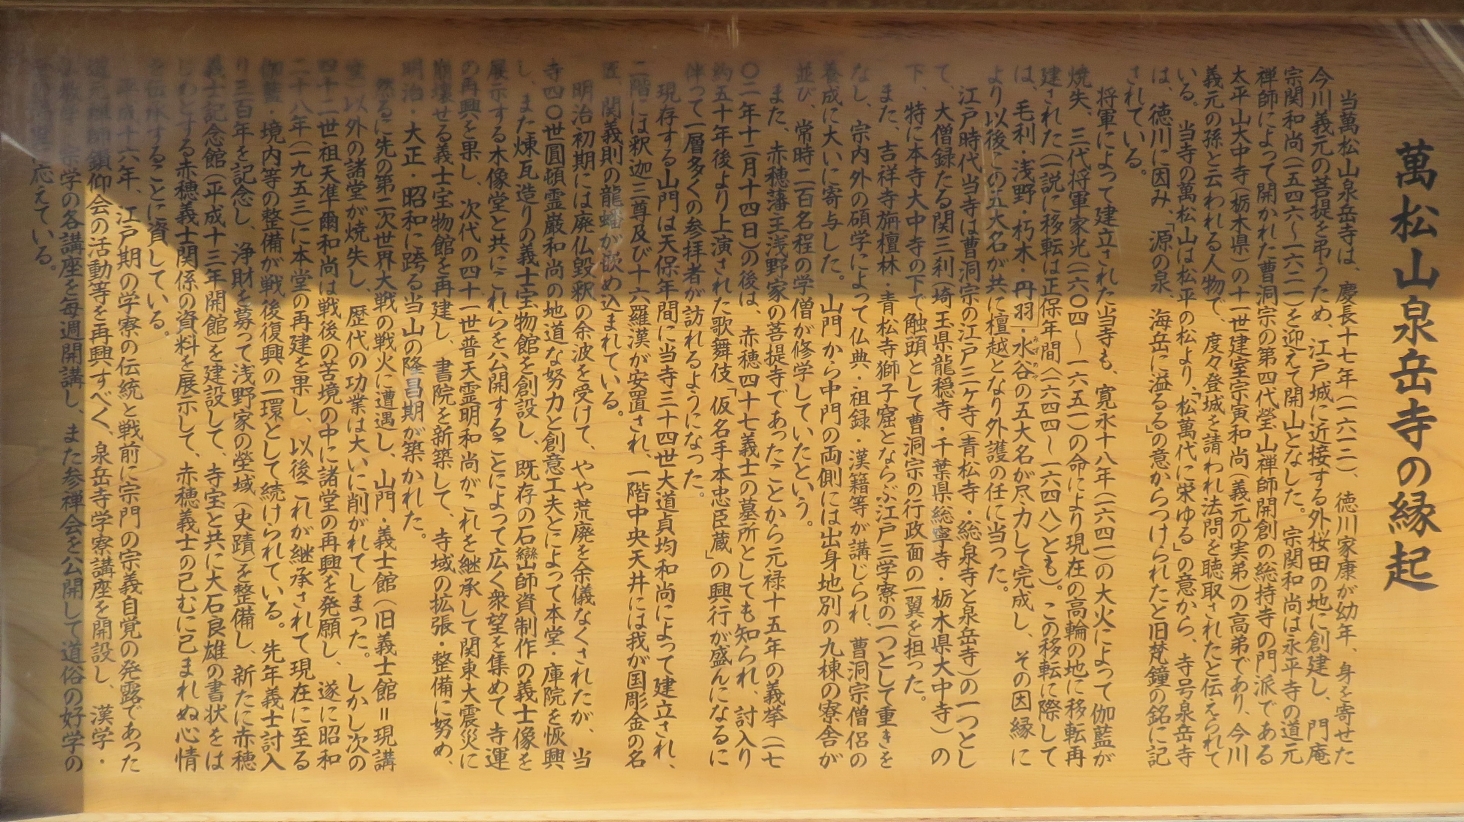 萬松山泉岳寺の縁起
当萬松山泉岳寺は、慶長十七年(一六一二)、徳川家康が幼年、身を寄せた
今川義元の菩提を弔うため、江戸城に近接する外桜田の地に創建し、門庵
宗関和尚(一五四六～一六二一)を迎えて開山となした。宗関和尚は永平寺の道元
禅師によって開かれた曹洞宗の第四代瑩山禅師開創の総持寺の門派である
太平山大中寺(栃木県)の十一世建室宗寅和尚(義元の実弟)の高弟であり、今川
義元の孫と云われる人物で、度々登城を請われ法問を聴取されたと伝えられて
いる。当寺の萬松山は松平の松より、「松萬代に栄ゆる」の意から、寺号泉岳寺
は、徳川に因み、「源の泉、海岳に溢るる」の意からつけられたと旧梵鐘の銘に記
されている。
将軍によって建立された当寺も、寛永十八年(一六四一)の大火によって伽藍が
焼失、三代将軍家光(一六〇四～一六五一)の命により現在の高輪の地に移転再
建された(一説に移転は正保年間〈一六四四～一六四八〉とも)。この移転に際して
は、毛利・浅野・朽木・丹羽・水谷の五大名が尽力して完成し、その因縁に
より以後この五大名が共に檀越となり外護の任に当った。
江戸時代当寺は曹洞宗の江戸三ケ寺(青松寺・総泉寺と泉岳寺)の一つとし
て、大僧録たる関三刹(埼玉県龍穏寺・千葉県総寧寺・栃木県大中寺)の
下、特に本寺大中寺の下で触頭として曹洞宗の行政面の一翼を担った。
また、吉祥寺旃檀林・青松寺獅子窟とならぶ江戸三学寮の一つとして重きを
なし、宗内外の碩学によって仏典・祖録・漢籍等が講じられ、曹洞宗僧侶の
養成に大いに寄与した。山門から中門の両側には出身地別の九棟の寮舎が
並び、常時二百名程の学僧が修学していたという。
また、赤穂藩主浅野家の菩提寺であったことから元禄十五年の義挙(一七
〇二年十二月十四日)の後は、赤穂四十七義士の墓所としても知られ、討入り
約五十年後より上演された歌舞伎「仮名手本忠臣蔵」の興行が盛んになるに
伴って一層多くの参拝者が訪れるようになった。
現存する山門は天保年間に当寺三十四世大道貞均和尚によって建立され、
二階には釈迦三尊及び十六羅漢が安置され、一階中央天井には我が国彫金の名
匠、関義則の龍蟠が嵌め込まれている。
明治初期には廃仏毀釈の余波を受けて、やや荒廃を余儀なくされたが、当
寺四〇世圓頓霊巌和尚の地道な努力と創意工夫とによって本堂・庫院を恢興
し、また煉瓦造りの義士宝物館を創設し、既存の石巒師資制作の義士像を
展示する木像堂と共にこれらを公開することによって広く衆望を集めて寺運
の再興を果し、次代の四十一世普天霊明和尚がこれを継承して関東大震災に
崩壊せる義士宝物館を再建し、書院を新築して、寺域の拡張・整備に努め、
明治・大正・昭和に跨る当山の隆昌期が築かれた。
然るに先の第二次世界大戦の戦火に遭遇し、山門、義士館(旧義士館=現講
堂)以外の諸堂が焼失し、歴代の功業は大いに削がれてしまった。しかし次の
四十二世祖天準爾和尚は戦後の苦境の中に諸堂の再興を発願し、遂に昭和
二十八年(一九五三)に本堂の再建を果し、以後これが継承されて現在に至る
伽藍・境内等の整備が戦後復興の一環として続けられている。先年義士討入
り三百年を記念し、浄財を募って浅野家の塋域(史蹟)を整備し、新たに赤穂
義士記念館(平成十三年開館)を建設して、寺宝と共に大石良雄の書状をは
じめとする赤穂義士関係の資料を展示して、赤穂義士の已むに已まれぬ心情
を伝承することに資している。
平成十六年、江戸期の学寮の伝統と戦前に宗門の宗義自覚の発露であった
道元禅師鑽仰会の活動等を再興すべく、泉岳寺学寮講座を開設し、漢学・
仏教学・宗学の各講座を毎週開講し、また参禅会を公開して道俗の好学の
応えている。